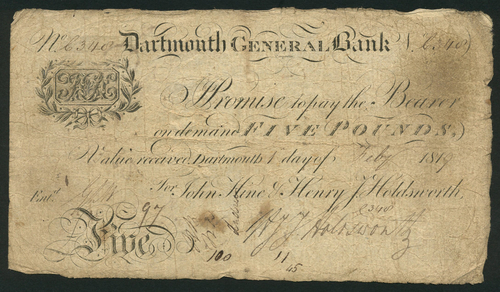 No. C340 Dartmouth GENERAL Bank No. C340
I Promise to pay the Bearer
on demand FIVE POUNDS,
Value received Dartmouth 1 day of Feby 1819
For John Hine & Henry J. Holdsworth,
Entd.
C340
Five
97
Holdsworth
100 11
45